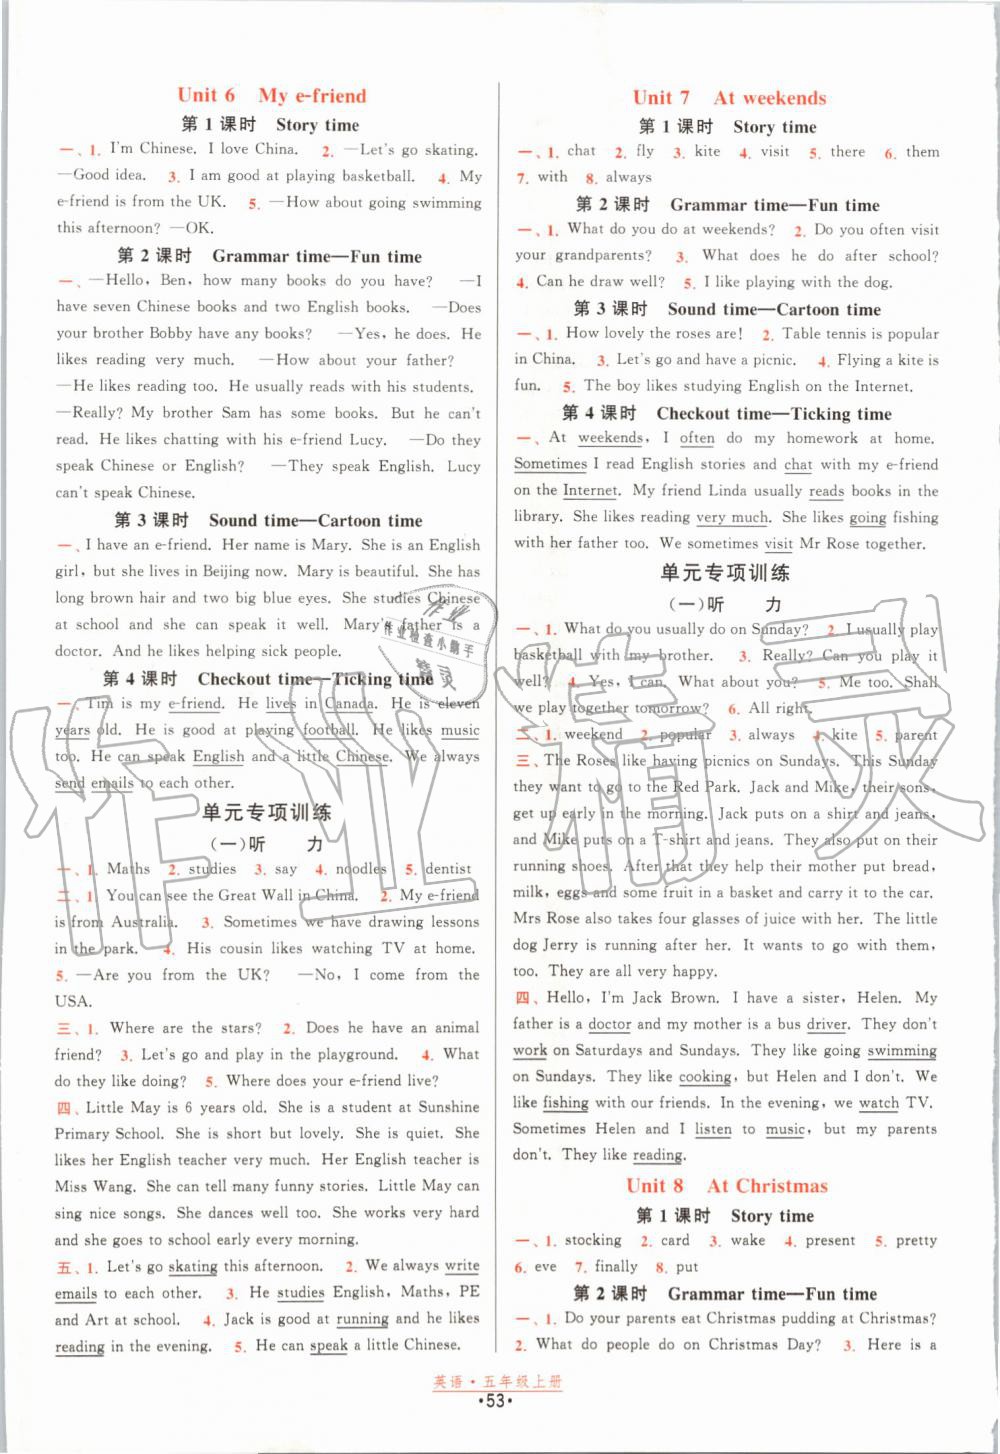 Unit 6 My e-friend
第 1 课时 Story time
一、1. I'm Chinese. I love China. 2. —Let's go skating.
—Good idea. 3. I am good at playing basketball. 4. My
e-friend is from the UK. 5. —How about going swimming
this afternoon? —OK.
第 2 课时 Grammar time—Fun time
一、—Hello, Ben, how many books do you have? —I
have seven Chinese books and two English books. —Does
your brother Bobby have any books? —Yes, he does. He
likes reading very much. —How about your father?
—He likes reading too. He usually reads with his students.
—Really? My brother Sam has some books. But he can't
read. He likes chatting with his e-friend Lucy. —Do they
speak Chinese or English? —They speak English. Lucy
can't speak Chinese.
第 3 课时 Sound time—Cartoon time
一、I have an e-friend. Her name is Mary. She is an English
girl, but she lives in Beijing now. Mary is beautiful. She has
long brown hair and two big blue eyes. She studies Chinese
at school and she can speak it well. Mary's father is a
doctor. And he likes helping sick people.
第 4 课时 Checkout time—Ticking time
一、Tim is my e-friend. He lives in Canada. He is eleven
years old. He is good at playing football. He likes music
too. He can speak English and a little Chinese. We always
send emails to each other.
单元专项训练
(一)听 力
一、1. Maths 2. studies 3. say 4. noodles 5. dentist
二、1. You can see the Great Wall in China. 2. My e-friend
is from Australia. 3. Sometimes we have drawing lessons
in the park. 4. His cousin likes watching TV at home.
5. —Are you from the UK? —No, I come from the
USA.
三、1. Where are the stars? 2. Does he have an animal
friend? 3. Let's go and play in the playground. 4. What
do they like doing? 5. Where does your e-friend live?
四、Little May is 6 years old. She is a student at Sunshine
Primary School. She is short but lovely. She is quiet. She
likes her English teacher very much. Her English teacher is
Miss Wang. She can tell many funny stories. Little May can
sing nice songs. She dances well too. She works very hard
and she goes to school early every morning.
五、1. Let's go skating this afternoon. 2. We always write
emails to each other. 3. He studies English, Maths, PE
and Art at school. 4. Jack is good at running and he likes
reading in the evening. 5. He can speak a little Chinese.
Unit 7 At weekends
第 1 课时 Story time
一、1. chat 2. fly 3. kite 4. visit 5. there 6. them
7. with 8. always
第 2 课时 Grammar time—Fun time
一、1. What do you do at weekends? 2. Do you often visit
your grandparents? 3. What does he do after school?
4. Can he draw well? 5. I like playing with the dog.
第 3 课时 Sound time—Cartoon time
一、1. How lovely the roses are! 2. Table tennis is popular
in China. 3. Let's go and have a picnic. 4. Flying a kite is
fun. 5. The boy likes studying English on the Internet.
第 4 课时 Checkout time—Ticking time
一、At weekends, I often do my homework at home.
Sometimes I read English stories and chat with my e-friend
on the Internet. My friend Linda usually reads books in the
library. She likes reading very much. She likes going fishing
with her father too. We sometimes visit Mr Rose together.
单元专项训练
(一)听 力
一、1. What do you usually do on Sunday? 2. I usually play
basketball with my brother. 3. Really? Can you play it
well? 4. Yes, I can. What about you? 5. Me too. Shall
we play together tomorrow? 6. All right.
二、1. weekend 2. popular 3. always 4. kite 5. parent
三、The Roses like having picnics on Sundays. This Sunday
they want to go to the Red Park. Jack and Mike, their sons,
get up early in the morning. Jack puts on a shirt and jeans,
and Mike puts on a T-shirt and jeans. They also put on their
running shoes. After that they help their mother put bread,
milk, eggs and some fruit in a basket and carry it to the car.
Mrs Rose also takes four glasses of juice with her. The little
dog Jerry is running after her. It wants to go with them,
too. They are all very happy.
四、Hello, I'm Jack Brown. I have a sister, Helen. My
father is a doctor and my mother is a bus driver. They don't
work on Saturdays and Sundays. They like going swimming
on Sundays. They like cooking, but Helen and I don't. We
like fishing with our friends. In the evening, we watch TV.
Sometimes Helen and I listen to music, but my parents
don't. They like reading.
Unit 8 At Christmas
第 1 课时 Story time
一、1. stocking 2. card 3. wake 4. present 5. pretty
6. eve 7. finally 8. put
第 2 课时 Grammar time—Fun time
一、1. Do your parents eat Christmas pudding at Christmas?
2. What do people do on Christmas Day? 3. Here is a
英语·五年级上册
·53·
作业精灵
作业
作业检查小助手
精灵